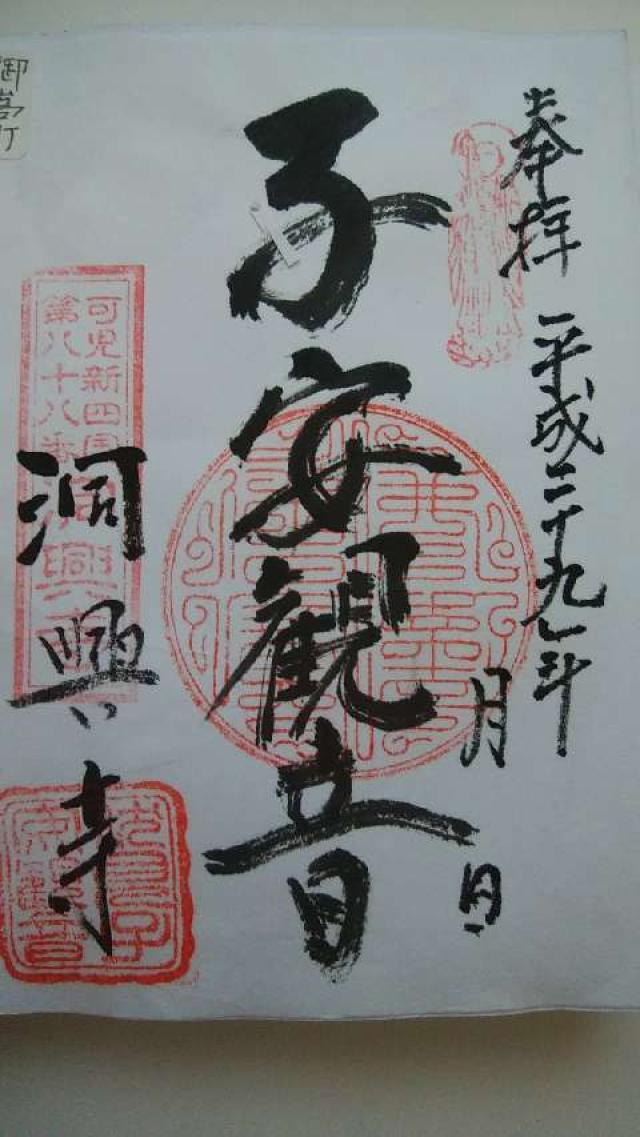 奉拝 平成二十九年
月 日
子安観音
可児新四国
第八十八番 洞興寺
洞興寺
御嵩町